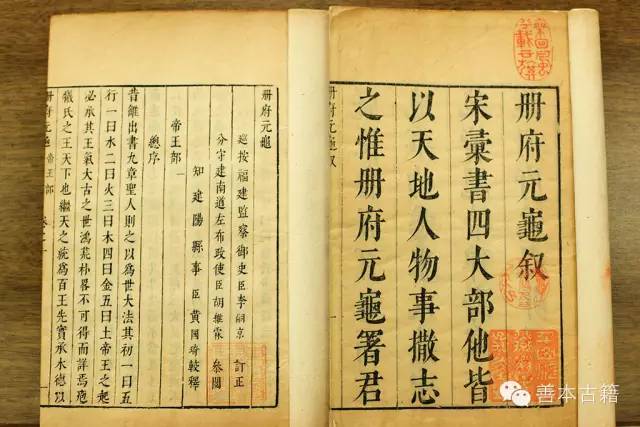 册府元龜叙
宋彙書四大部他皆
以天地人物事撒志
之惟册府元龜署君
册府元龜叙
一
册府元龜
巡按福建監察御史臣李嗣京 訂正
分守建南道左布政使臣胡維霖 參閱
知建陽縣事臣黄國琦較釋
帝王部
總序
昔雒出書九章聖人則之以為世大法其初一曰五
行一曰水二曰火三曰木四曰金五曰土帝王之起
必承其王氣大古之世鴻荒朴畧不可得而詳焉庖
犧氏之王天下也繼天之統為百王先實承木德以
册府元龜 帝王部 卷之一
善本古籍